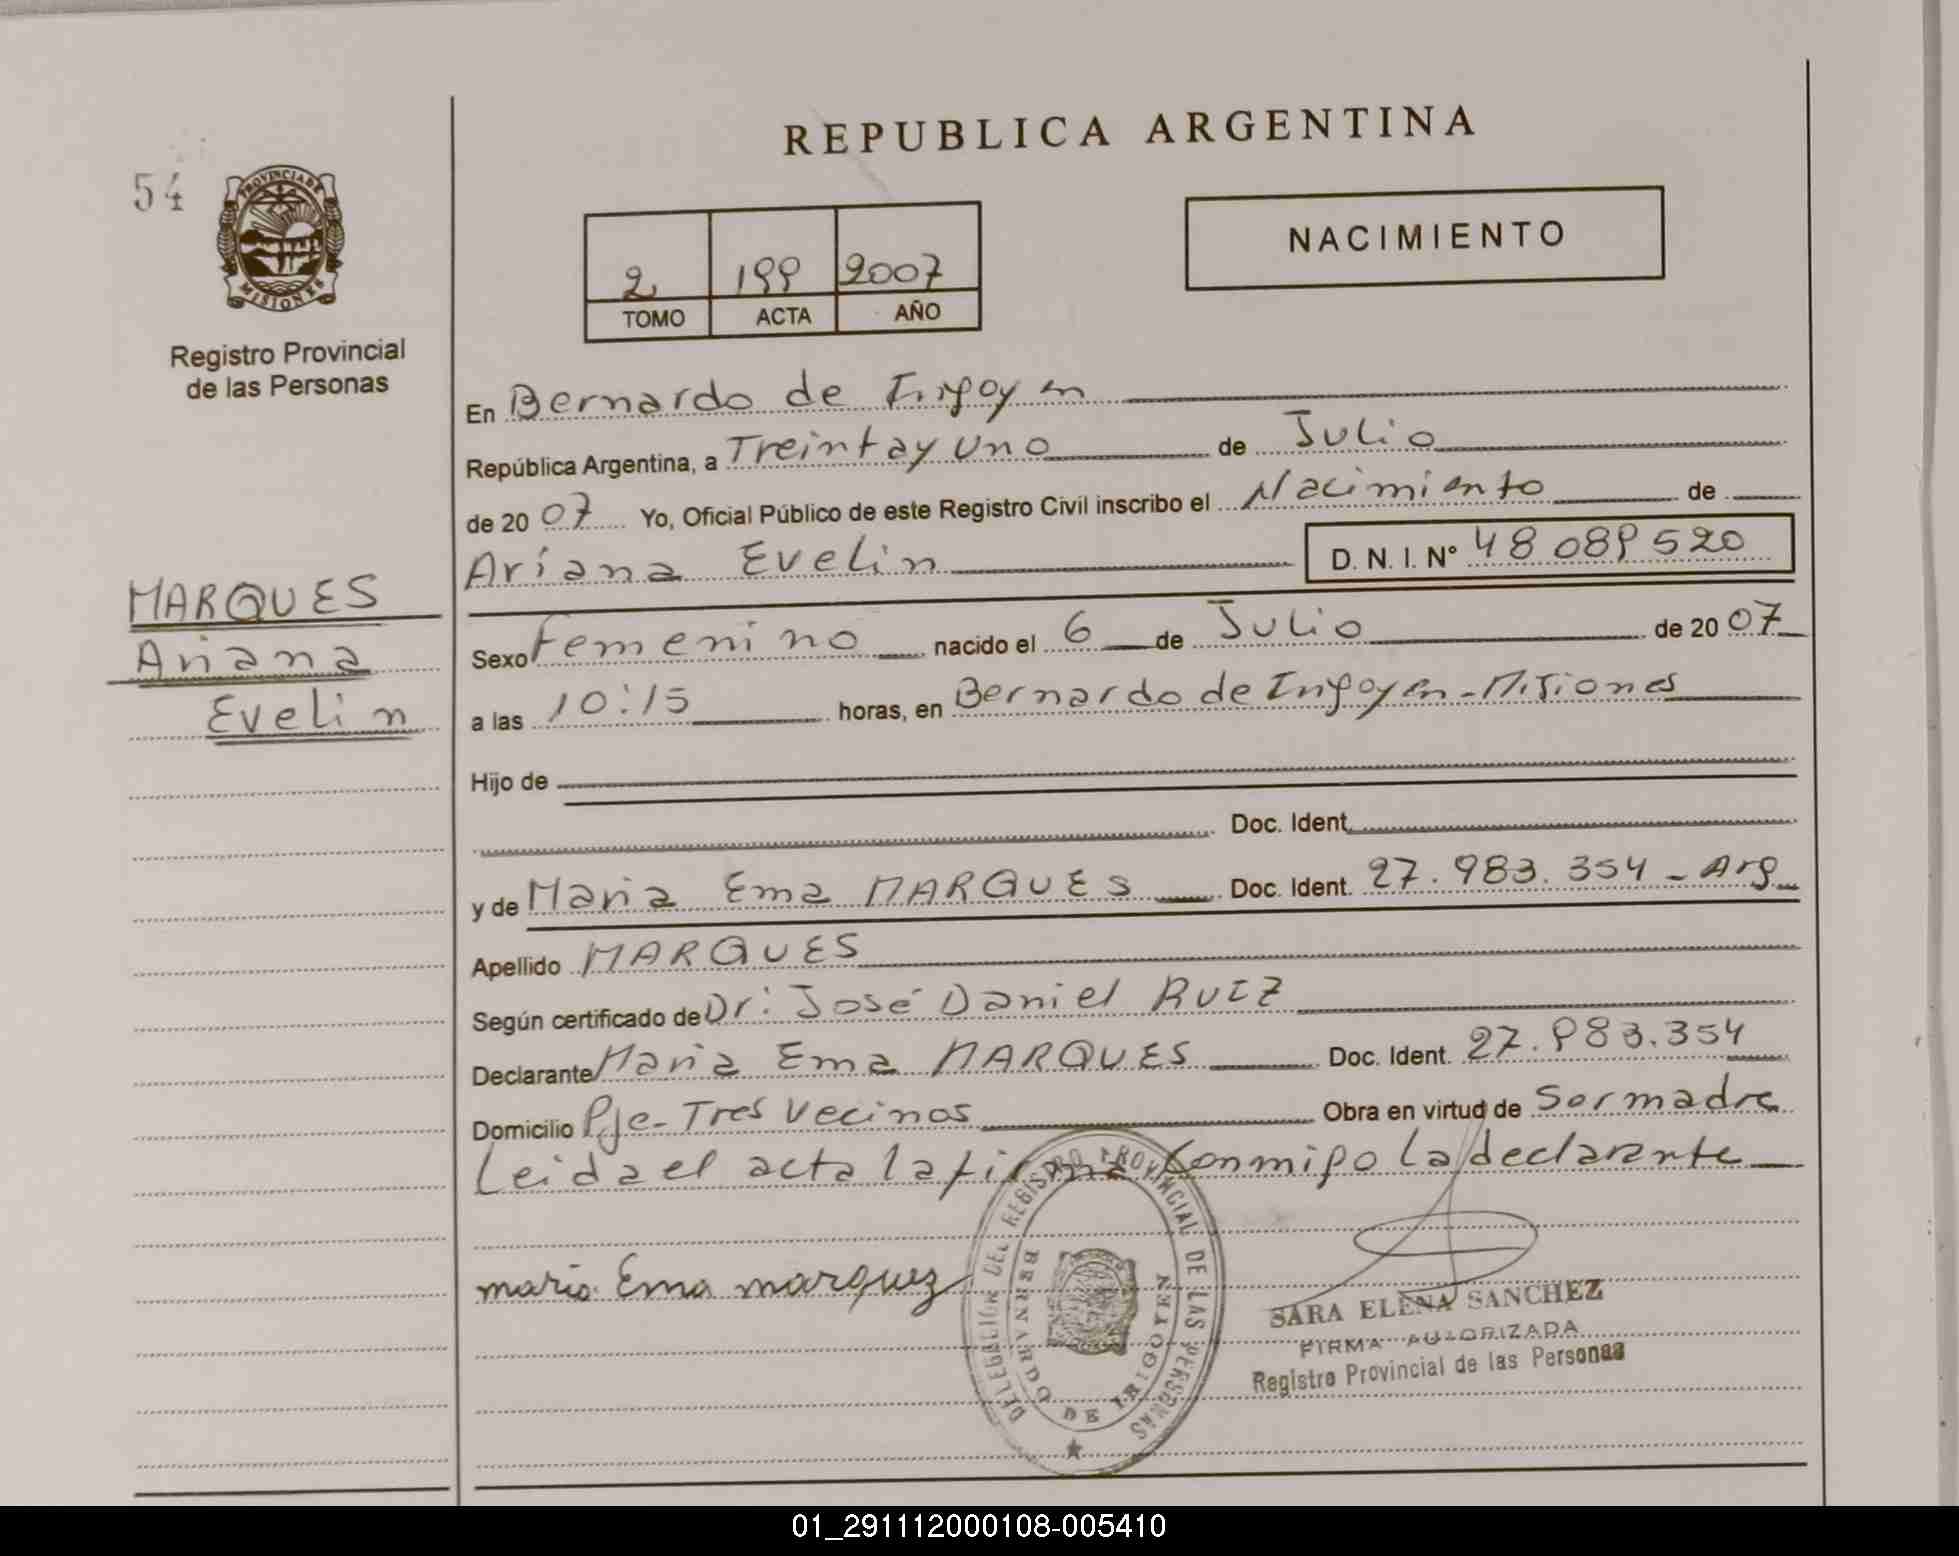 REPUBLICA ARGENTINA
54
PROVINCIA DE
MISIONES
Registro Provincial
de las Personas
NACIMIENTO
2 199 2007
TOMO ACTA AÑO
En Bernardo de Irigoyen
República Argentina, a Treinta y Uno de Julio
de 20 07 Yo, Oficial Público de este Registro Civil inscribo el Nacimiento de
Ariana Evelin D. N. I. Nº 48 089 520
MARQUES
Ariana
Evelin
Sexo Femenino nacido el 6 de Julio de 20 07
a las 10:15 horas, en Bernardo de Irigoyen - Misiones
Hijo de
Doc. Ident.
y de Maria Ema MARQUES Doc. Ident. 27.983.354 - Arg
Apellido MARQUES
Según certificado de Dr: José Daniel RUIZ
Declarante Maria Ema MARQUES Doc. Ident. 27.983.354
Domicilio Pje- Tres Vecinos Obra en virtud de Ser madre
Leida el acta la firma Conmigo la declarante
maria Ema marquez
DELEGACIÓN DEL REGISTRO PROVINCIAL DE LAS PERSONAS
BERNARDO DE IRIGOYEN
SARA ELENA SANCHEZ
FIRMA AUTORIZADA
Registro Provincial de las Personas
01_291112000108-005410